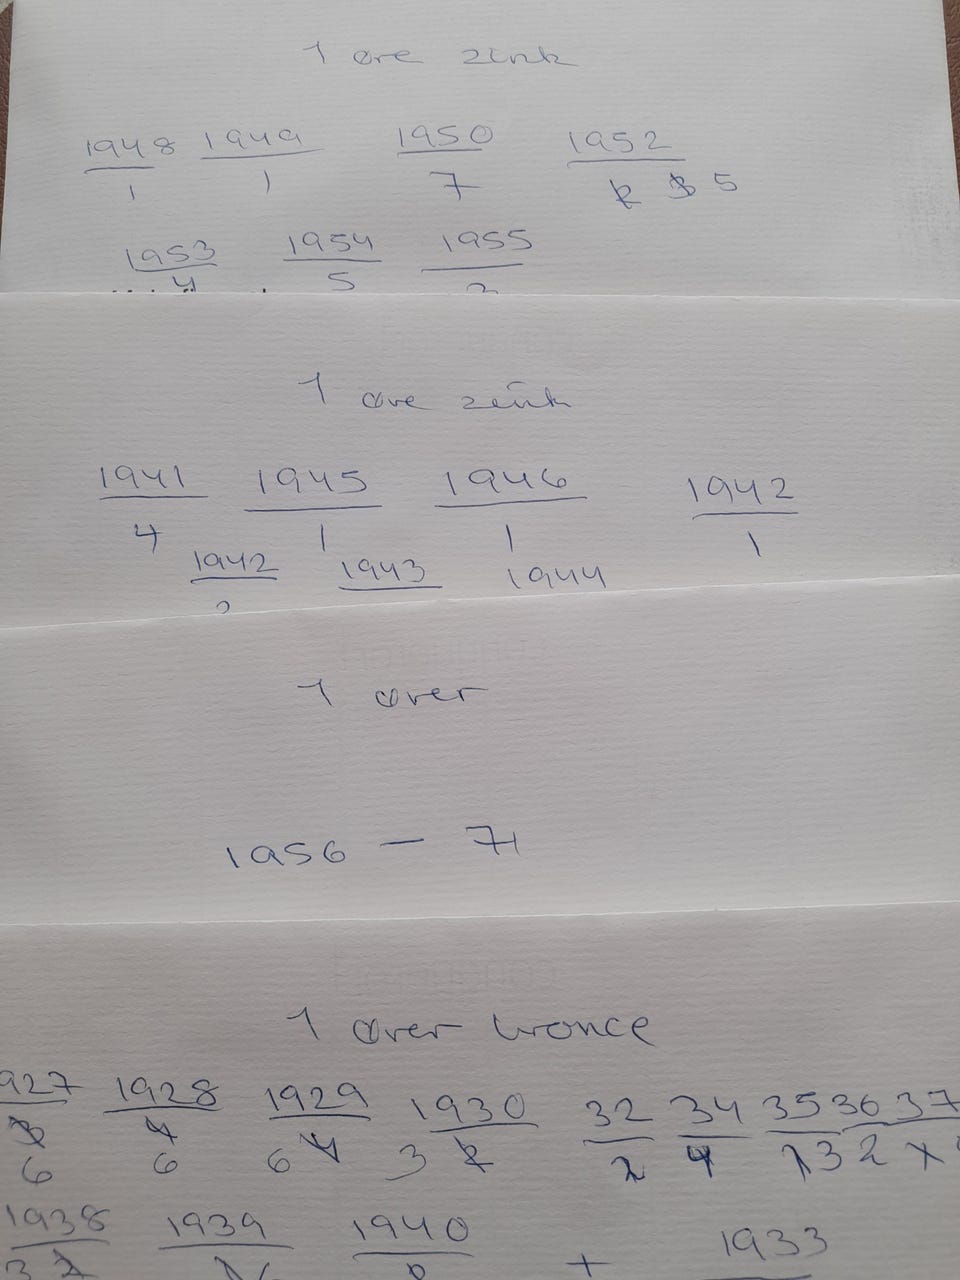 1 øre zink
1948 1949 1950 1952
1 1 7 2 3 5
1953 1954 1955
4 5
1 øre zink
1941 1945 1946 1942
4 1 1 1
1942 1943 1944
1 ører
1956 – 71
1 ører bronce
1927 1928 1929 1930 32 34 35 36 37
3 4 4 3 2 2 4 1 3 2 1
6 6 6
1938 1939 1940 + 1933
3 2